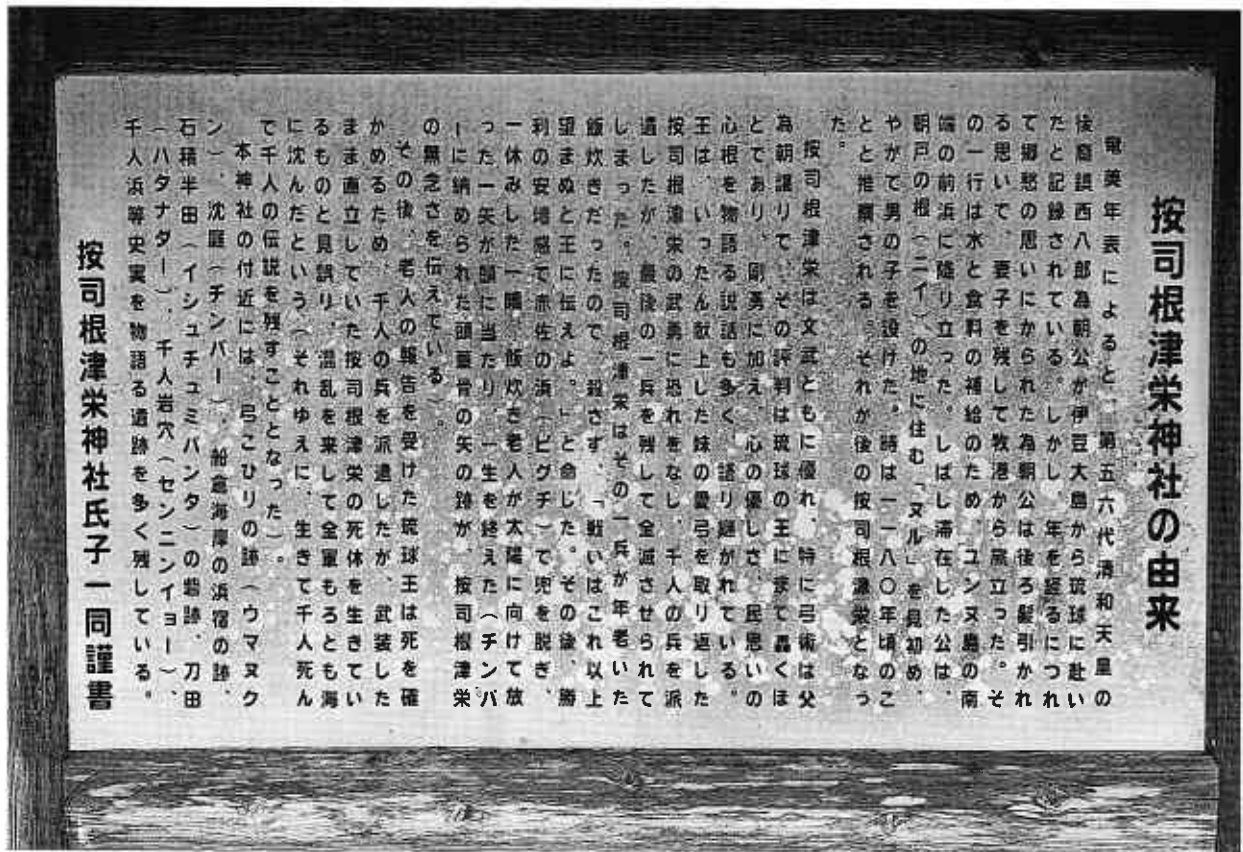 按司根津栄神社の由来
竜美年表によると、第五六代清和天皇の
後裔鎮西八郎為朝公が伊豆大島から琉球に赴い
たと記録されている。しかし、年を経るにつれ
て郷愁の思いにかられた為朝公は後ろ髪引かれ
る思いで、妻子を残して牧港から旅立った。そ
の一行は水と食料の補給のため、ユンヌ島の南
端の前浜に降り立った。しばし滞在した公は、
朝戸の根(ニイ)、の地に住む「ヌル」を見初め、
やがて男の子を設けた。時は一一八〇年頃のこ
とと推察される。それが後の按司根津栄となっ
た。
按司根津栄は文武ともに優れ、特に弓術は父
為朝譲りで、その評判は琉球の王にまで轟くほ
とであり、剛勇に加え、心の優しさ、民思いの
心根を物語る説話も多く、語り継がれている。
王は、いったん献上した妹の愛弓を取り返した
按司根津栄の武勇に恐れをなし、千人の兵を派
遣したが、最後の一兵を残して全滅させられて
しまった。按司根津栄はその一兵が年老いた
飯炊きだったので、殺さず、「戦いはこれ以上
望まぬと王に伝えよ。」と命じた。その後、勝
利の安堵感で赤佐の浜(ビグチ)で兜を脱ぎ、
一休みした一瞬、飯炊き老人が太陽に向けて放
った一矢が額に当たり、一生を終えた(チンバ
ーに納められた頭蓋骨の矢の跡が、按司根津栄
の無念さを伝えている)。
その後、老人の報告を受けた琉球王は死を確
かめるため、千人の兵を派遣したが、武装した
まま直立していた按司根津栄の死体を生きてい
るものと見誤り、混乱を来して全軍もろとも海
に沈んだという(それゆえに、生きて千人死ん
で千人の伝説を残すこととなった)。
本神社の付近には、弓こひりの跡(ウマヌク
ン)、沈庭(チンバー)、船倉海岸の浜宿の跡、
石積半田(イシュチュミバンタ)の砦跡、刀田
(ハタナダー)、千人岩穴(センニンイョー)、
千人浜等史実を物語る遺跡を多く残している。
按司根津栄神社氏子一同謹書